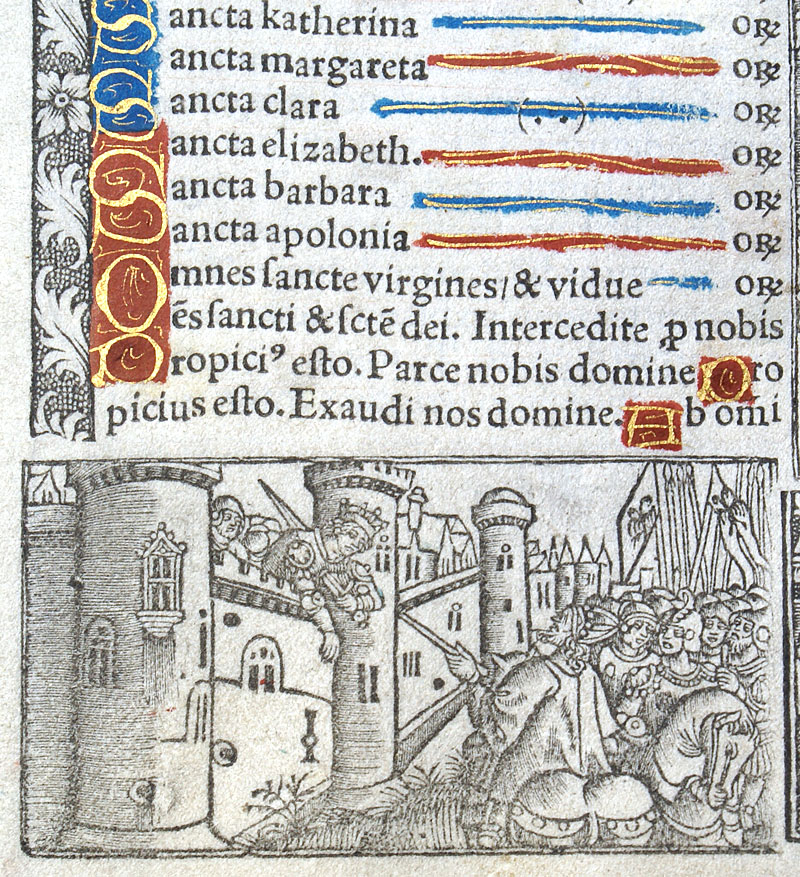 Sancta katherina oꝶ
Sancta margareta oꝶ
Sancta clara oꝶ
Sancta elizabeth. oꝶ
Sancta barbara oꝶ
Sancta apolonia oꝶ
Omnes ſancte virgines/ & vidue oꝶ
Oēs ſancti & ſctē dei. Intercedite ꝓ nobis
Propiciꝰ eſto. Parce nobis domine Pro
picius eſto. Exaudi nos domine. Ab om̄i